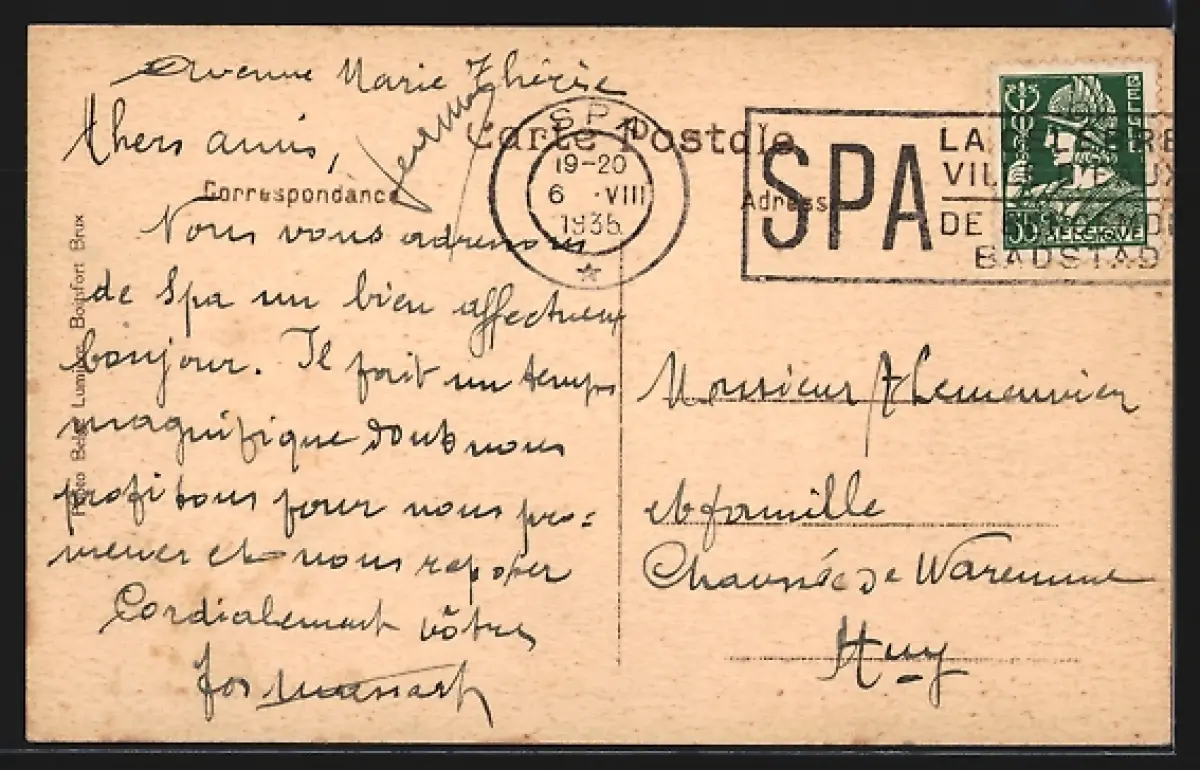 Avenue Marie Thérèse
Chers amis,
Carte Postale
Correspondance
Adresse
SPA
19-20
6 VIII
1936
SPA
LA CELEBRE
VILLE D'EAUX
DE
BADSTAD
BELGIE
BELGIQUE
Nous vous adressons
de Spa un bien affectueux
bonjour. Il fait un temps
magnifique dont nous
profitons pour nous pro=
mener et nous reposer
Cordialement vôtres
Jos
Monsieur Thémeunier
et famille
Chaussée de Waremme
Huy
Photo Belge Lumière Boitsfort Brux